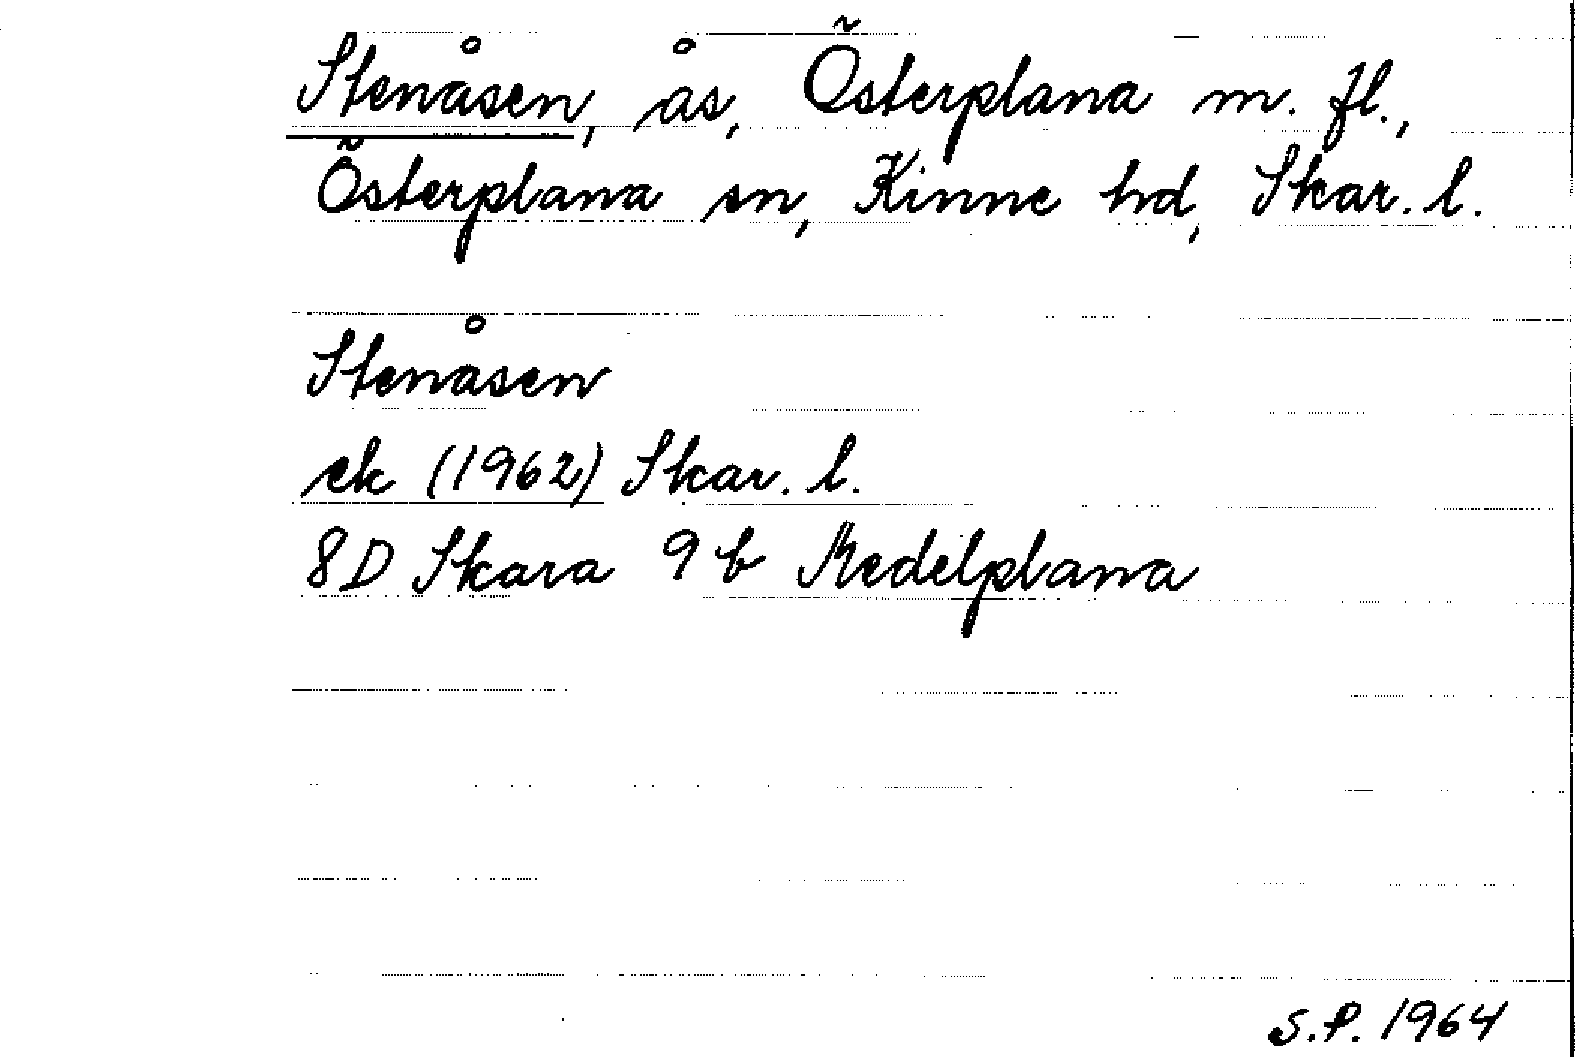 Stenåsen, ås, Österplana m. fl.,
Österplana sn, Kinne hd, Skar. l.
Stenåsen
ek (1962) Skar. l.
8D Skara 9 b Medelplana
S.P. 1964